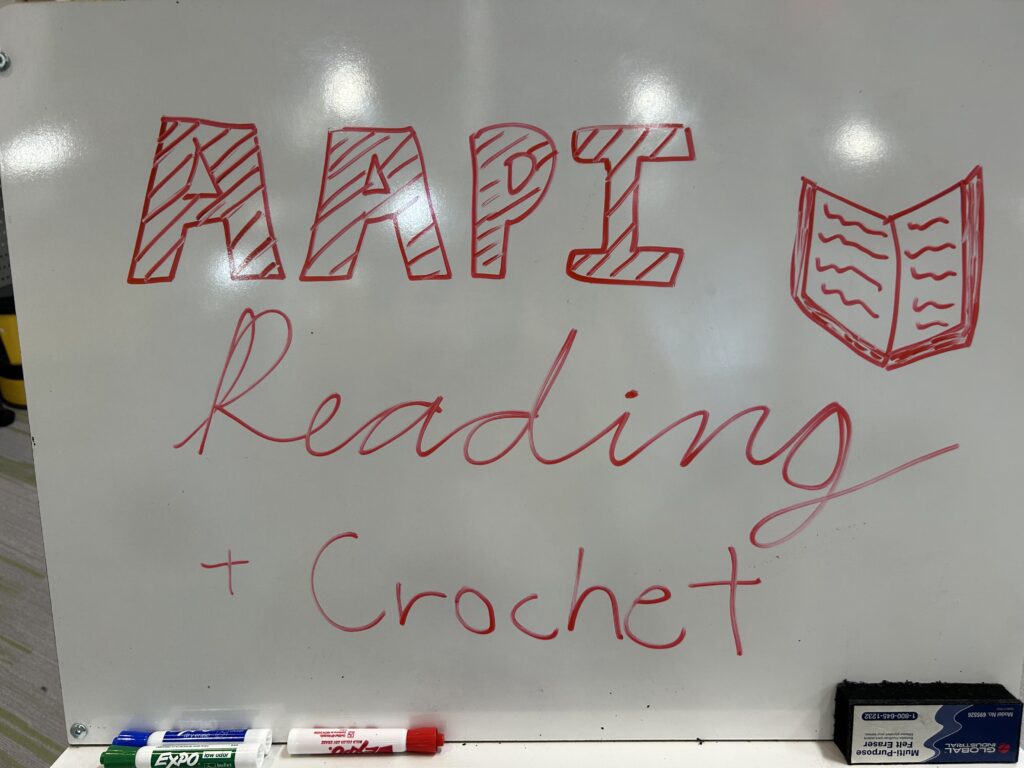 AAPI
Reading
+ Crochet
EXPO low odor
EXPO
Model No. 695526
1-800-645-1232
GLOBAL INDUSTRIAL
Multi-Purpose
Felt Eraser